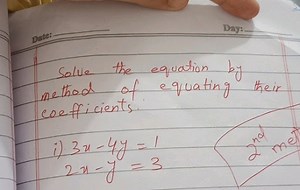 Date: Day:
Solve the equation by
method of equating their
coefficients.
i) 3x - 4y = 1
2x - y = 3
2nd met